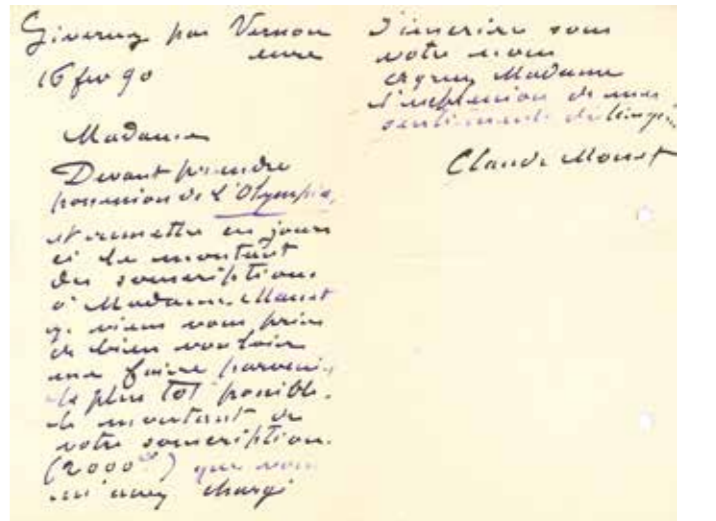 Giverny par Vernon
eure
16 fev 90
Madame
Devant prendre
possession de l'Olympia,
et remettre ces jours
ci le montant
des souscriptions
à Madame Manet
je viens vous prier
de bien vouloir
me faire parvenir
le plus tôt possible
le montant de
votre souscription
(2000 fr) que vous
m'avez chargé
d'inscrire sous
votre nom
agréez Madame
l'expression de mes
sentiments distingués
Claude Monet